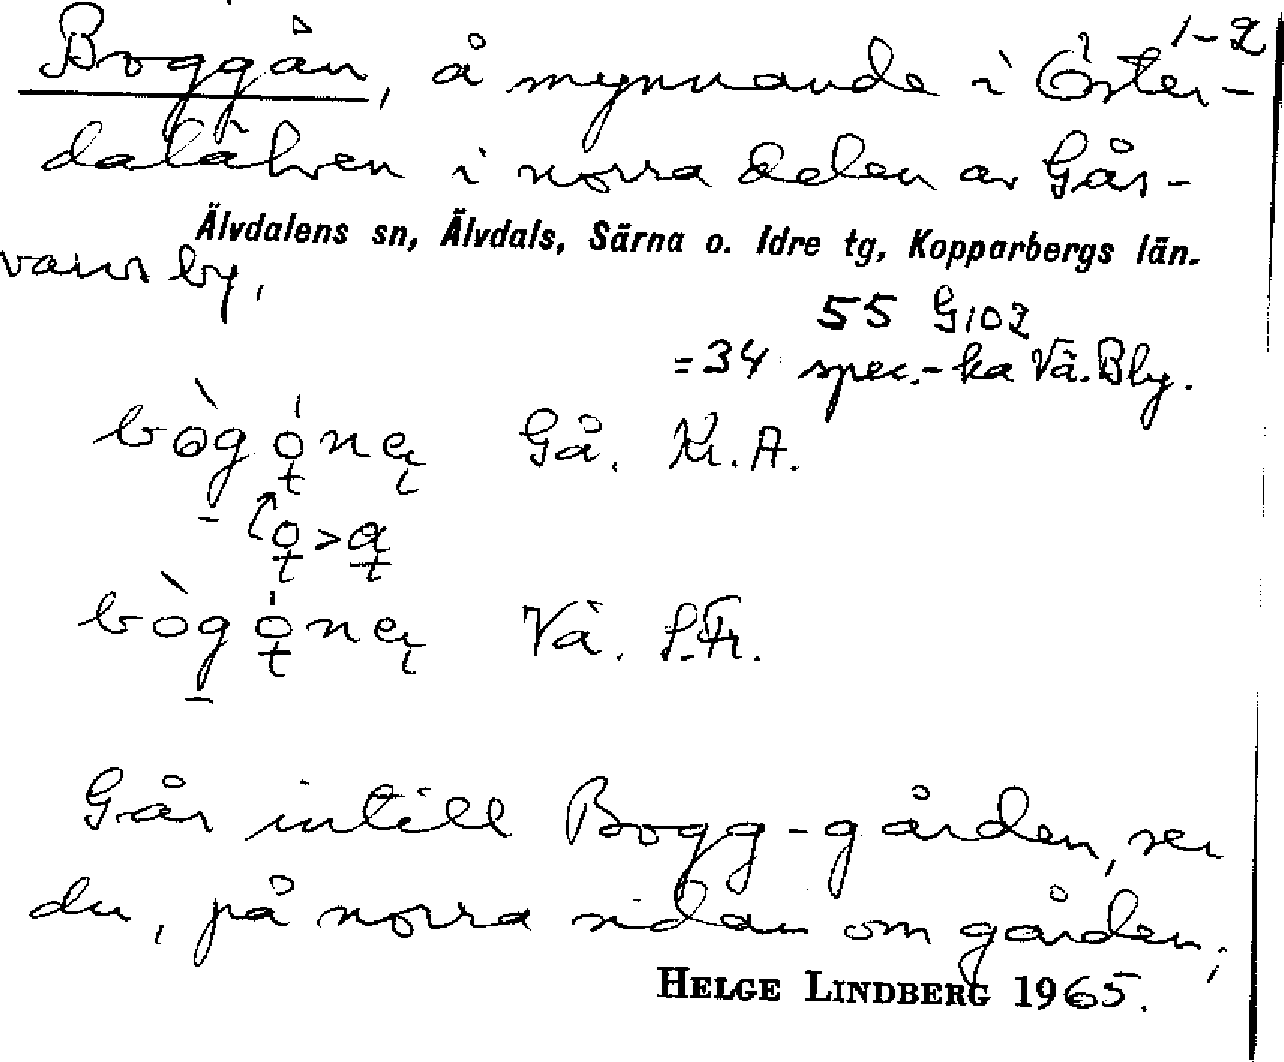 1-2
Boggån, å mynnande i Öster-
dalälven i norra delen av Går-
Älvdalens sn, Älvdals, Särna o. Idre tg, Kopparbergs län.
varns by,
55 G102
=34 spec.-ka Vä. Bby.
bògǫ́nẹ Gå. Kr. A.
ǫ>ą
bògǫ́nẹ Vä. S. Fr.
Går intill Bogg-gården, ser
du, på norra sidan om gården;
HELGE LINDBERG 1965.